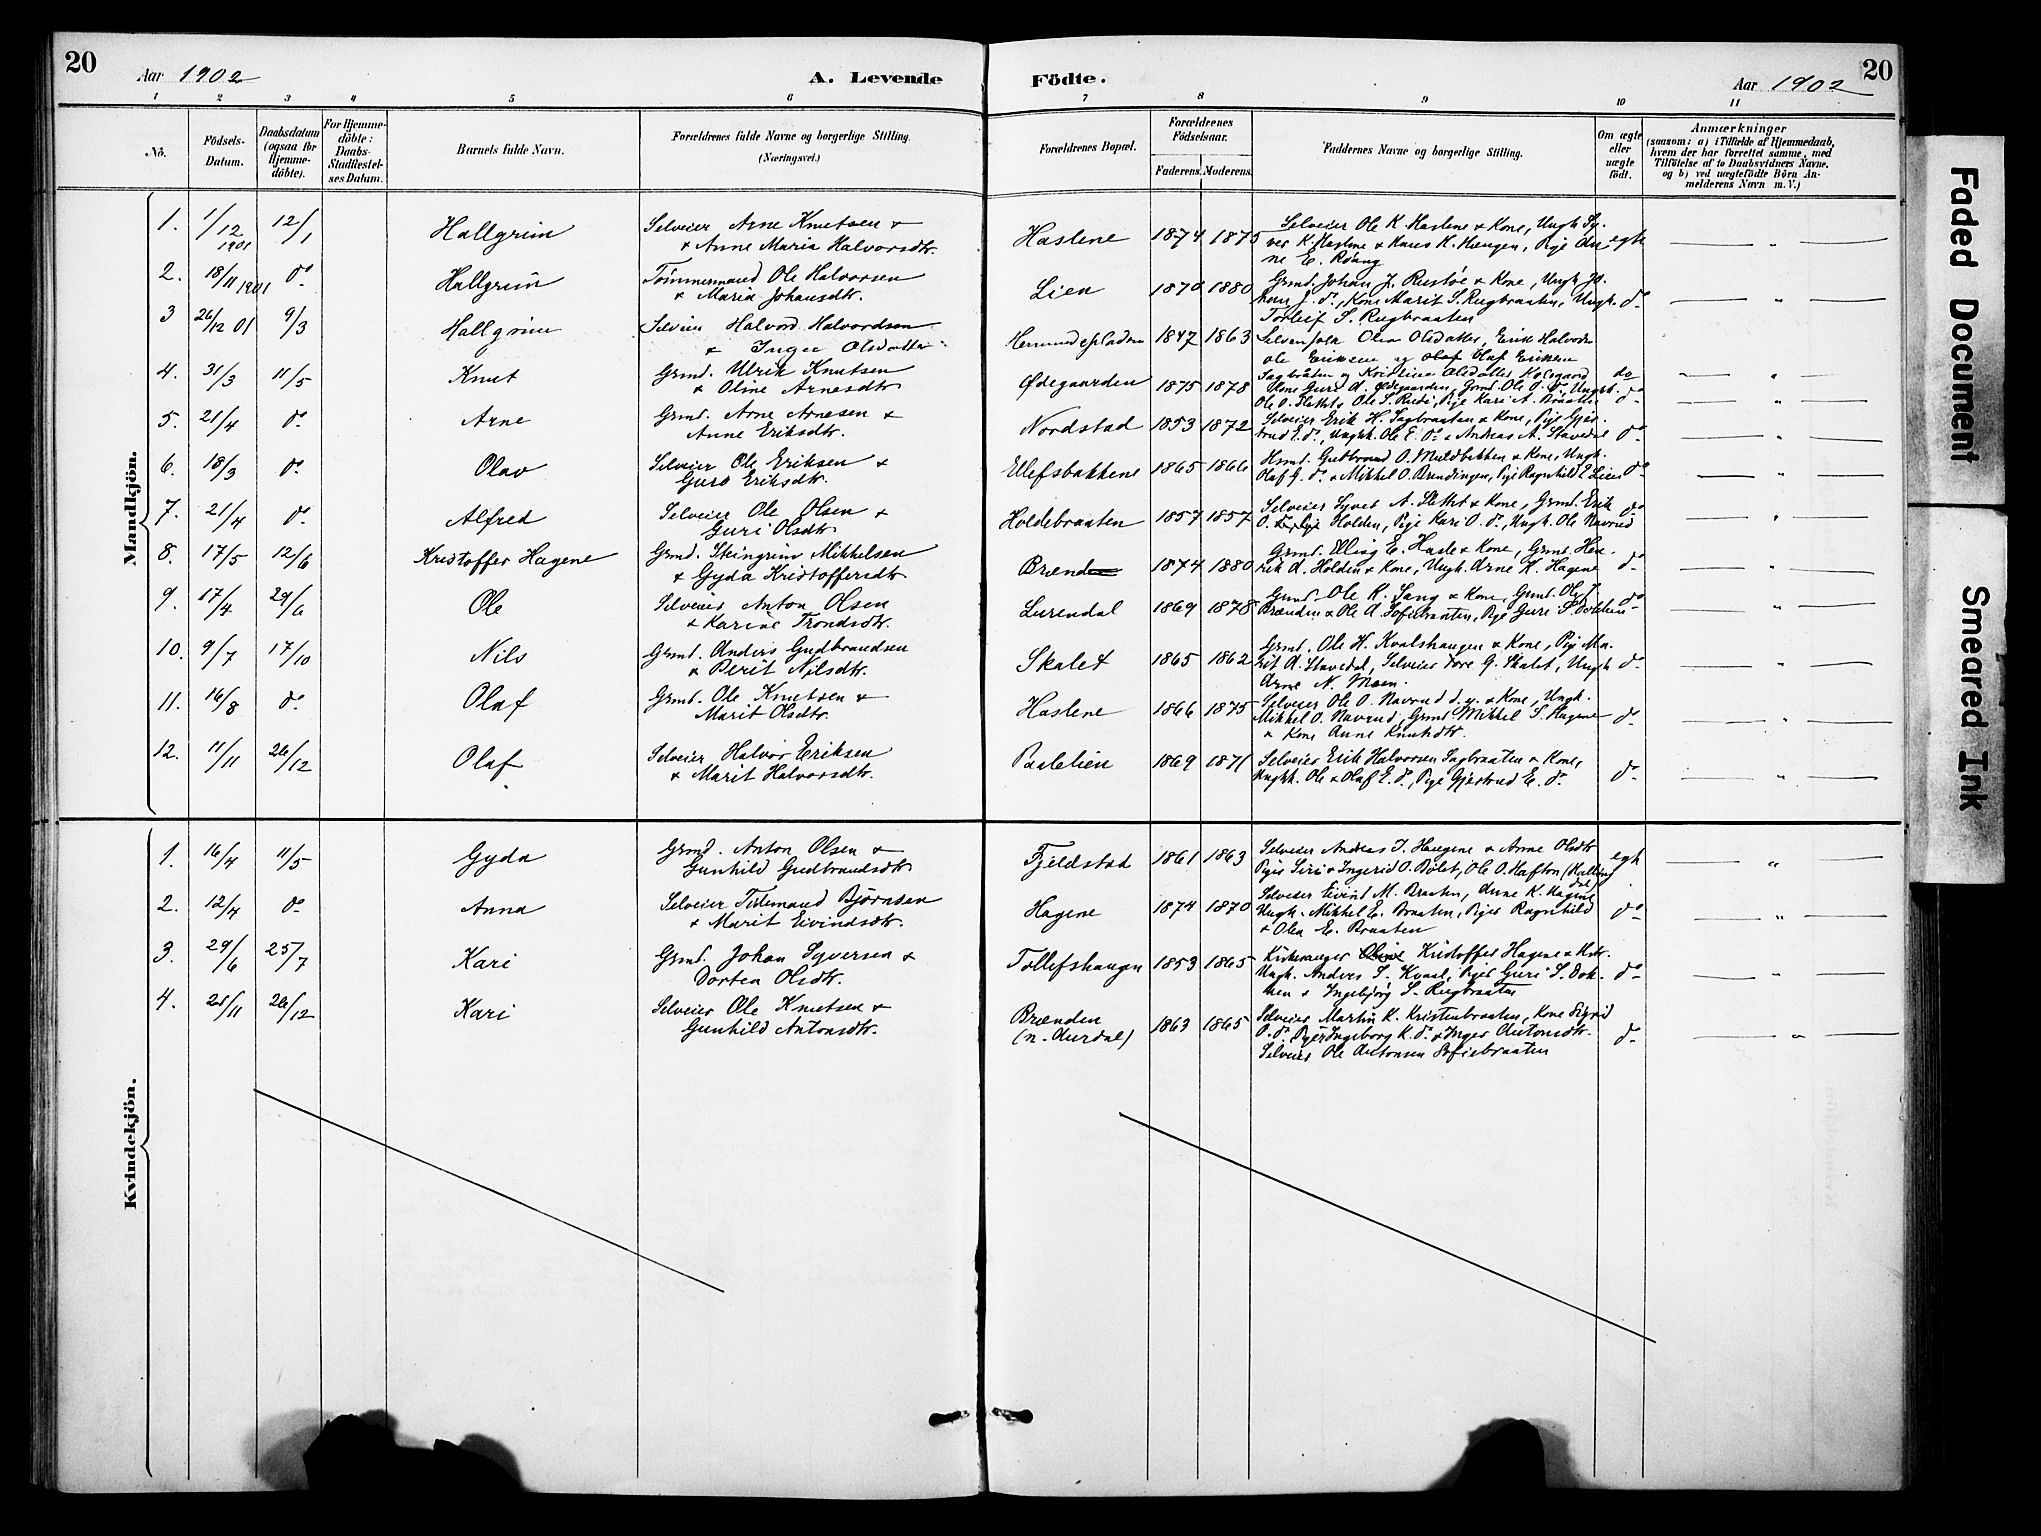 20
Aar 1902
A. Levende
Fødte.
Aar 1902
20
1 2 3 4 5 6 7 8 9 10 11
Nò.
Födsels-Datum.
Daabsdatum (ogsaa for Hjemme-döbte).
For Hjemme-döbte: Daabs-Stadfæstel-ses Datum.
Barnets fulde Navn.
Forældrenes fulde Navne og borgerlige Stilling. (Næringsvei.)
Forældrenes Bopæl.
Forældrenes Födselsaar.
Faderens. Moderens.
Faddernes Navne og borgerlige Stilling.
Om ægte eller uægte födt.
Anmærkninger
(saasom: a) i Tilfælde af Hjemmedaab,
hvem der har forrettet samme, med
Tilföielse af to Daabsvidners Navne,
og b) ved uægtefödte Börn An-
melderens Navn m.V.)
Mandkjön.
1. 1/12 1901 12/1 Hallgrim
Selveier Arne Knutsen &
& Anne Maria Halvorsdtr.
Haslene 1874 1875
Selveier Ole K. Haslene & Kone, Ungk. Sy-
ver K. Haslene & Knut K. Haugen, Pige An-
ne E. Röang
egte
2. 18/11 1901 do Hallgrim
Tömmermand Ole Halvorsen
& Maria Johansdtr.
Lien 1870 1880
Grmd. Johan J. Rustöe & Kone, Ungk. Jo-
han J. do, Kone Marit S. Rugbraaten, Ungk.
Torleif S. Rugbraaten
do
3 26/12 01 9/3 Hallgrim
Selveier Halvord Halvordsen
& Inger Olsdatter
1847 1863
Olea Olsdatter, Erik Halvordsen
Ole Eriksen og Olaf Eriksen
Sagbråten og Kristine Olsdatter Kolsgaard
do
4. 31/3 11/5 Knut
Grmd. Ulrik Knutsen
& Oline Arnesdtr
Ødegaarden 1875 1878
Kone Guri A. Ødegaarden, Grmd. Ole O. do, Ungk.
Ole O. Slettet, Ole S. Rudi, Pige Kari A.
do
5. 21/4 do Arne
Grmd. Arne Arnesen &
Anne Eriksdtr.
Nordstad 1853 1872
Selveier Erik H. Sagbraaten & Kone, Pige Gjer-
trud E. do, Ungk. Ole E. do & Andreas A. Stavedal
do
6. 18/3 do Olav
Selveier Ole Eriksen &
Guro Eriksdtr.
Ellefsbakkene 1865 1866
Husmd. Gudbrand O. Muldbakken & Kone, Ungk.
Olaf G. do & Mikkel O. Brændingen, Pige Ragnhild E Lien
do
7. 21/4 do Alfred
Selveier Ole Olsen &
Guri Olsdtr
Holdebraaten 1857 1857
Selveier Syver A. Slettet & Kone, Grmd. Erik
O. Holden, Pige Kari O. do, Ungk. Ole Navrud
do
8. 17/5 12/6 Kristoffer Hagene
Grmd. Steingrim Mikkelsen
& Gyda Kristoffersdtr
Brænd 1874 1880
Grmd. Elling E. Hasle & Kone, Grmd. Hen-
rik A. Holden & Kone, Ungk. Arne K. Hagene
do
9. 17/4 29/6 Ole
Selveier Anton Olsen
& Karine Trondsdtr.
Lurendal 1869 1878
Grmd. Ole K. Sang & Kone, Grmd. Ole J.
Brænden & Ole A. Sofiebraaten, Pige Guri S. Dokken
do
10. 9/7 17/10 Nils
Grmd. Anders Gudbrandsen
& Berit Nilsdtr.
Skalet 1865 1862
Grmd. Ole H. Kvalshaugen & Kone, Pige Ma-
rit A. Stavedal, Selveier Tore G. Skalet, Ungk
Arne N. Moen.
do
11. 16/8 do Olaf
Grmd. Ole Knutsen &
Marit Olsdtr.
Haslene 1866 1875
Selveier Ole O. Navrud d.y. & Kone, Ungk.
Mikkel O. Navrud, Grmd. Mikkel S. Hagene
& Kone Anne Knutsdtr.
do
12. 11/11 26/12 Olaf
Selveier Halvor Eriksen
& Marit Halvorsdtr.
Paalelien 1869 1871
Selveier Erik Halvorsen Sagbraaten & Kone,
Ungkk. Ole & Olaf E. do, Pige Gjertrud E. do
do
Kvindekjön.
1. 16/4 11/5 Gyda
Grmd. Anton Olsen &
Gunhild Gudbrandsdtr
Fjeldstad 1861 1863
Selveier Andreas J. Haugene & Anne Olsdtr
Piger Siri & Ingerid O. Bölet, Ole O. Hafton (Halling-
dal)
egte
2. 12/4 do Anna
Selveier Tidemand Björnsen
& Marit Eivindsdtr.
Hagene 1874 1870
Selveier Eivind M. Braaten, Anne K. Hagene
Ungk. Mikkel E. Braaten, Piger Ragnhild
& Olea E. Braaten
do
3. 29/6 25/7 Kari
Grmd. Johan Syversen &
Dortea Olsdtr.
Tollefshaugen 1853 1865
Kirkesanger Kristoffer Hagene & Hstr.
Ungk. Anders S. Kvaal, Piger Guri S. Dok-
ken & Ingebjörg S. Rugbraaten
do
4. 21/11 26/12 Kari
Selveier Ole Knutsen &
Gunhild Antonsdtr.
Brænden
(n. Aurdal)
1863 1865
Selveier Martin K. Kristenbraaten, Kone Sigrid
O. do, Piger Ingeborg K. do & Inger Antonsdtr.
Selveier Ole Antonsen Sofiebraaten
do
Faded Document
Smeared Ink